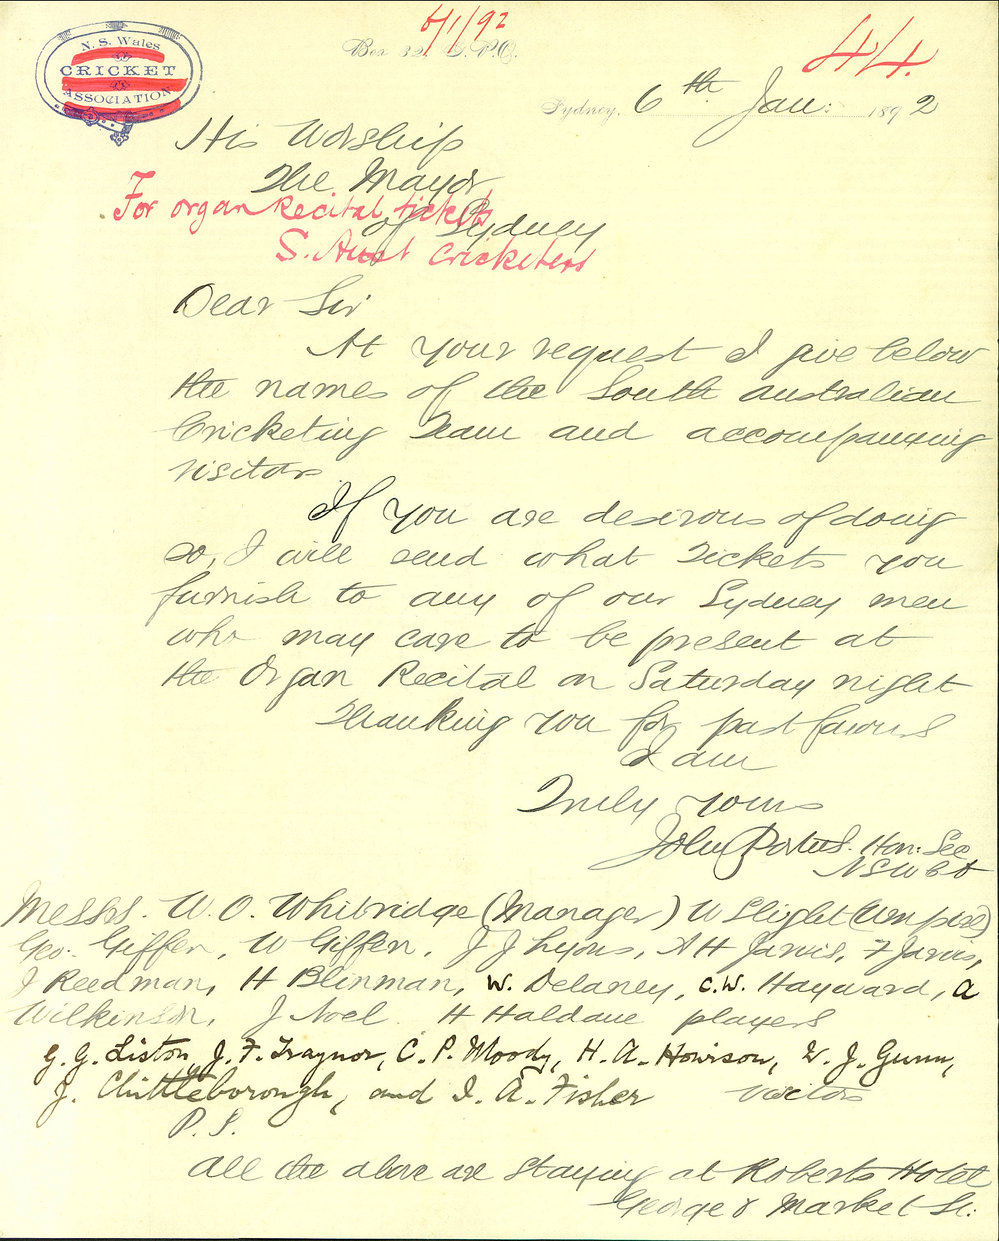 6/1/92
44.
N. S. Wales
CRICKET
ASSOCIATION
Box 32. G.P.O.
Sydney, 6th Jan: 1892
His Worship
The Mayor
of Sydney
For organ Recital tickets
S. Aust Cricketers
Dear Sir
At your request I give below
the names of the South Australian
Cricketing Team and accompanying
visitors
If you are desirous of doing
so, I will send what Tickets you
furnish to any of our Sydney men
who may care to be present at
the Organ Recital on Saturday night
Thanking you for past favours
I am
Truly yours
John Portus. Hon: Sec
NSWCA
Messrs. W. O. Whitridge (Manager) W Slight (Umpire)
Geo. Giffen, W Giffen, J J Lyons, A H Jarvis, F Jarvis,
J Reedman, H Blinman, W. Delaney, C.W. Hayward, A
Wilkinson, J Noel H Haldane players
G. G. Liston, J. F. Traynor, C. P. Moody, H. A. Howison, W. J. Gunn,
J. Chittleborough, and I. A. Fisher visitors
P.S.
All the above are staying at Roberts Hotel
George & Market St.